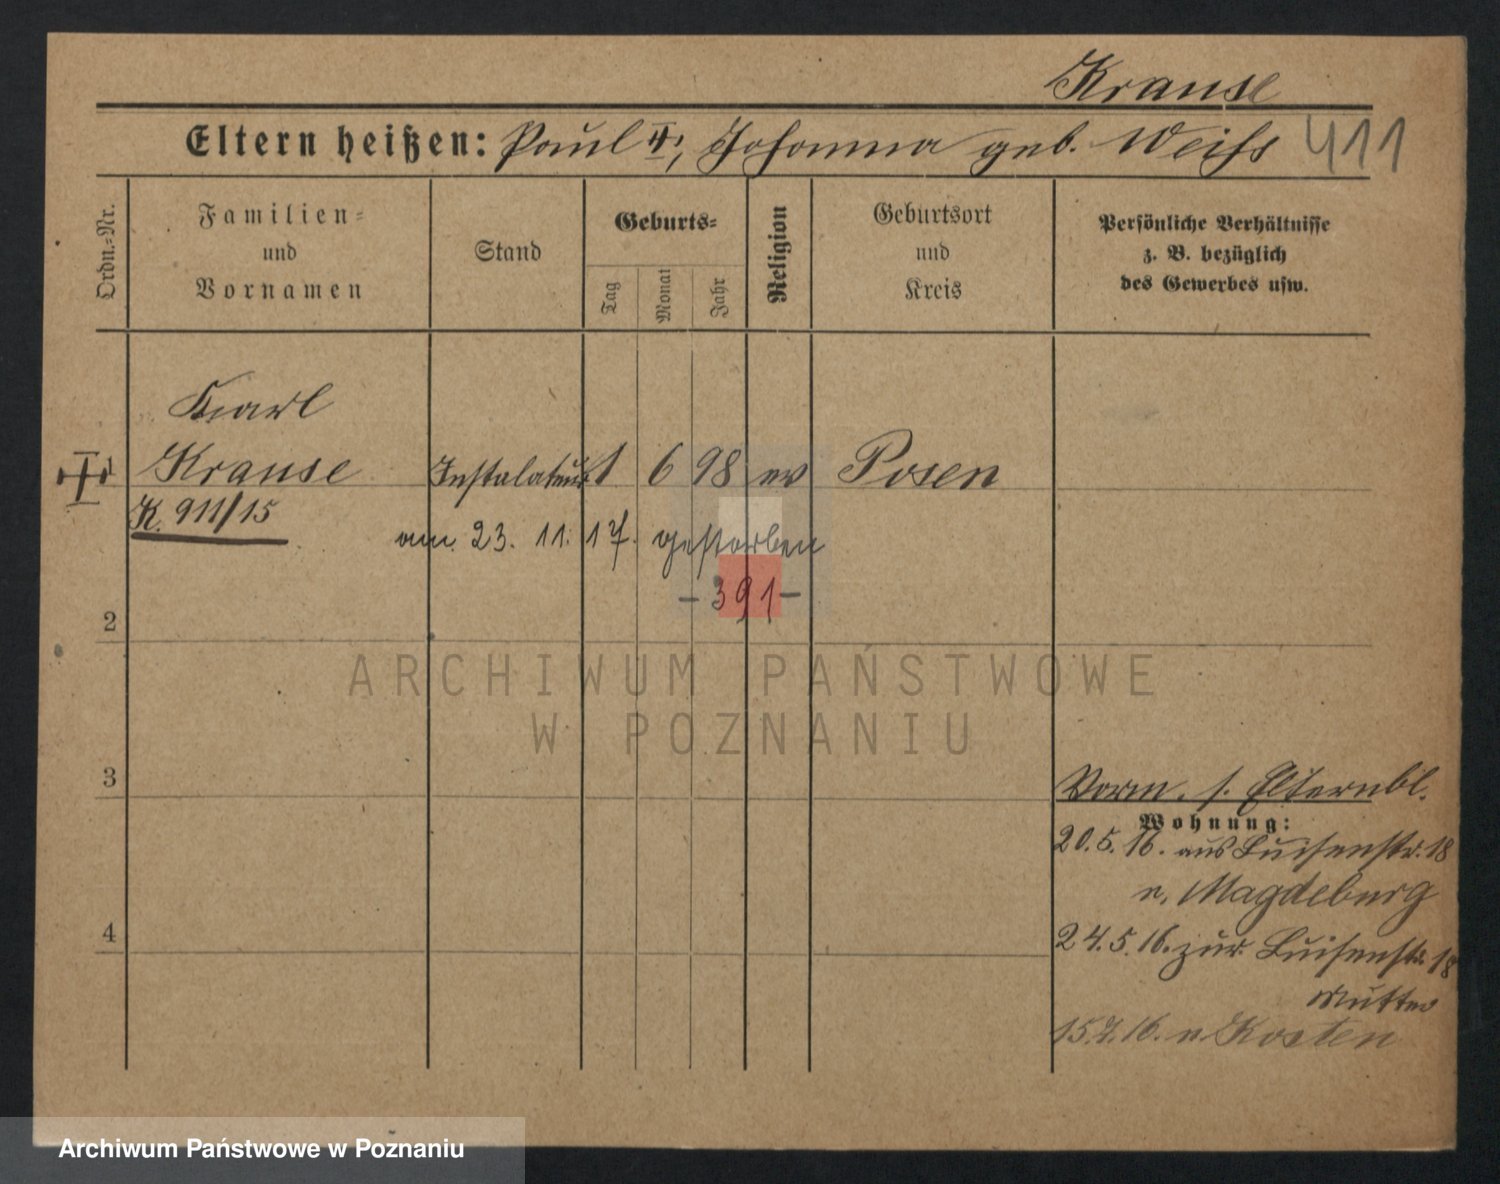 Krause
Eltern heißen: Paul II, Johanna geb. Weiss 411
Ordn.=Nr.
Familien=
und
Vornamen
Stand
Geburts=
Tag
Monat
Jahr
Religion
Geburtsort
und
Kreis
Persönliche Verhältnisse
z. B. bezüglich
des Gewerbes usw.
Karl
1 Krause Instalateur 1 6 98 ev Posen
K. 911/15
am 23. 11. 17. gestorben
- 391 -
2
ARCHIWUM PAŃSTWOWE
W POZNANIU
3
Vorm. s. Elternbl.
Wohnung:
20.5.16. aus Luisenstr. 18
n. Magdeburg
4
24.5.16. zur. Luisenstr. 18
Mutter
15.7.16. n. Kosten
Archiwum Państwowe w Poznaniu